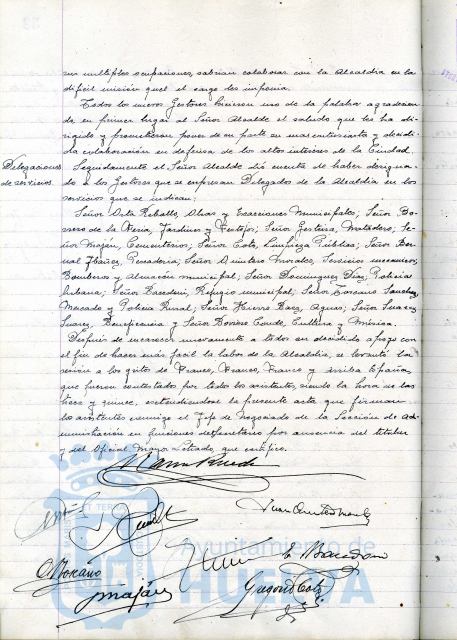 sus multiples ocupaciones, sabrian colaborar con la Alcaldia en la
dificil mision que el cargo les imponia.
Todos los nuevos Gestores hicieron uso de la palabra agradecien-
do en primer lugar al Señor Alcalde el saludo que les ha di-
rigido y prometieron poner de su parte su mas entusiasta y decidi-
da colaboracion en defensa de los altos intereses de la Ciudad.
Delegaciones
de servicios.
Seguidamente el Señor Alcalde dió cuenta de haber designa-
do a los Gestores que se expresan Delegados de la Alcaldia en los
servicios que se indican:
Señor Oria Reballo, Obras y Exacciones Municipales; Señor Bo-
rrero de la Feria, Jardines y Festejos; Señor Gestina, Matadero; Se-
ñor Moján, Cementerios; Señor Coto, Limpieza Publica; Señor Ber-
nal Ibañez, Pescaderia; Señor Quintero Morales, Servicios mecanicos,
Bomberos y Almacén municipal; Señor Dominguez Diaz, Policia
Urbana; Señor Escederi, Refugio municipal; Señor Toscano Sanchez,
Mercado y Policia Rural; Señor Hierro Baez, Aguas; Señor Suarez
Suarez, Beneficencia y Señor Borrero Conde, Cultura y Música.
Después de encarecer nuevamente a todos su decidido apoyo con
el fin de hacer más facil la labor de la Alcaldia, se levantó la
sesión a los gritos de Franco, Franco, Franco y Arriba España,
que fueron contestados por todos los asistentes, siendo la hora de las
trece y quince, extendiendose la presente acta que firman
los asistentes conmigo el Jefe de Negociado de la Sección de Ad-
ministración en funciones de Secretario por ausencia del titular
y del Oficial Mayor Letrado, que certifico.
Juan Quintero
Toscano
Moján
Gregorio Coto
Ayuntamiento de
HUELVA